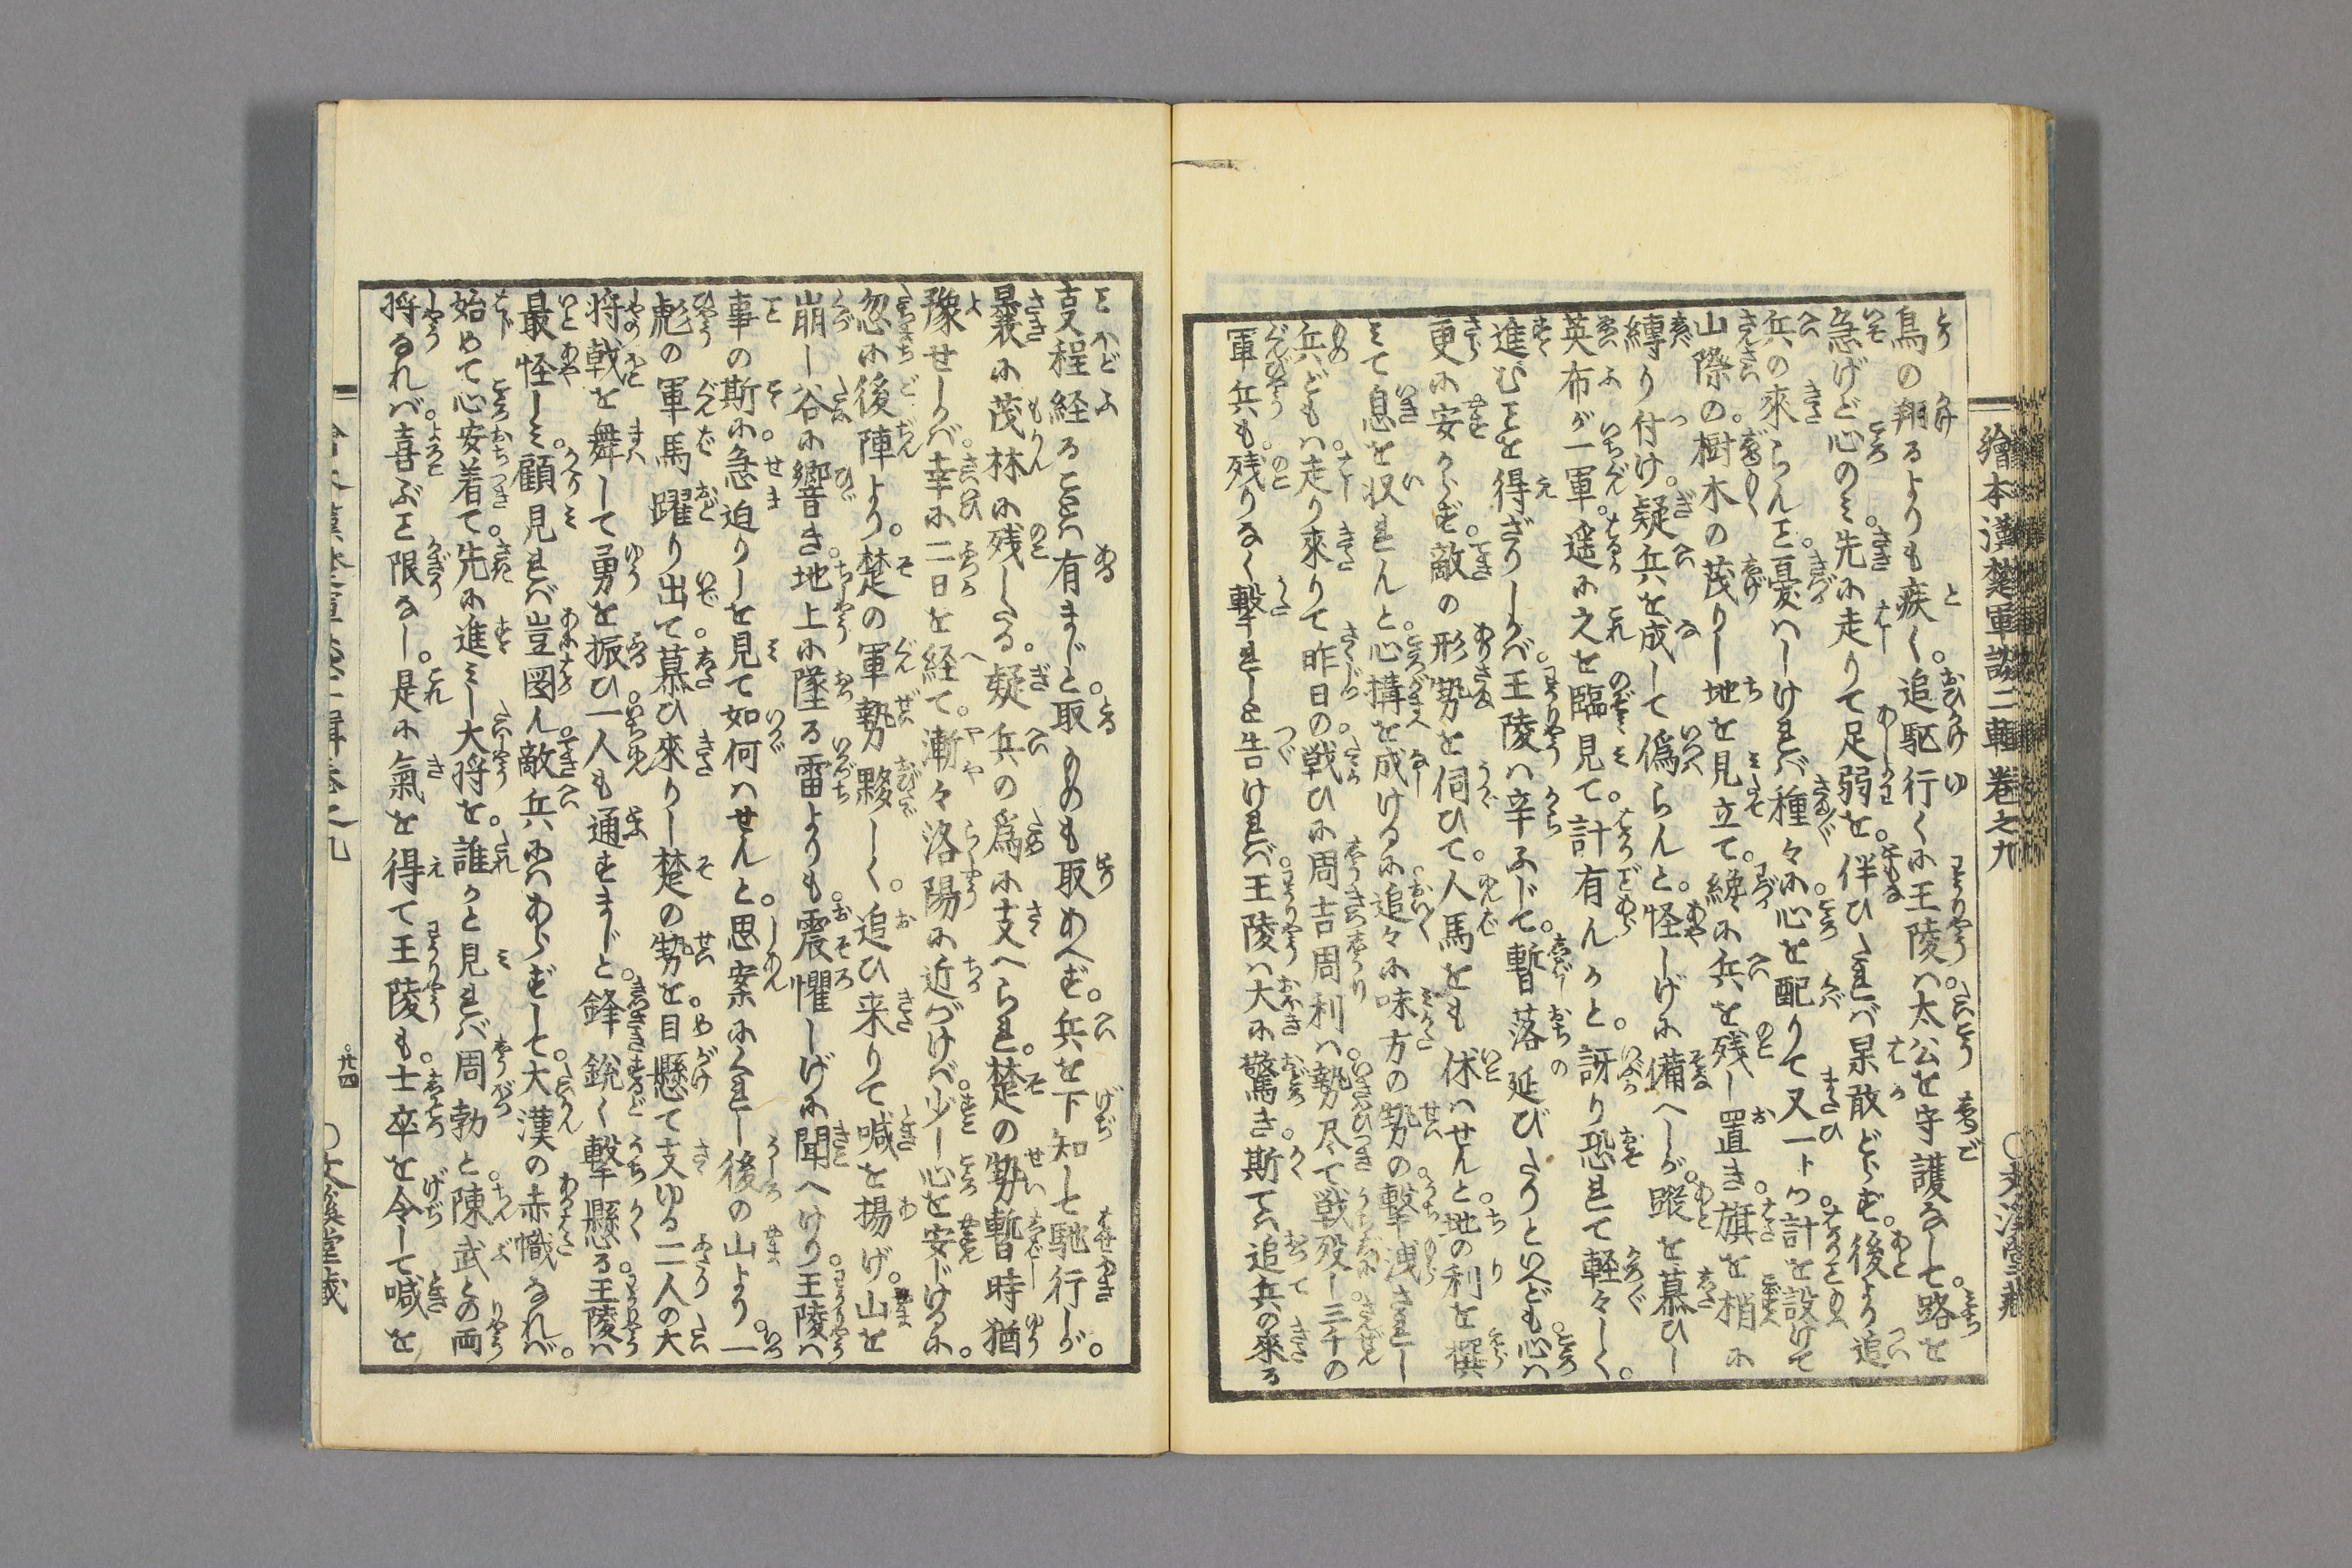 繪本漢楚軍談二輯卷之九
鳥の翔るよりも疾く。追駆行くに王陵ハ。太公を守護なして。路を
急げど心のミ。先に走りて足弱を。伴ひたれバ果敢どらず。後より追
兵の來らんと。憂ハしけれバ種々に。心を配りて又一トつ。計を設けて
山際の。樹木の茂りし地を見立て。纔に兵を残し置き。旗を梢に
縛り付け。疑兵を成して偽らんと。怪しげに備へしが。蹤を慕ひし
英布が一軍。遥に之を臨見て。計有んかと。訝り恐れて軽々しく。
進むことを得ざりしかバ。王陵ハ辛ふじて。暫落延びたりといへども。心ハ
更に安からず。敵の形勢を伺ひて。人馬をも休ハせんと。地の利を撰
ミて息を収れんと。心構を成けるに。追々に味方の勢の。撃洩されし
兵どもハ。走り來りて昨日の戦ひに。周吉周利ハ勢尽て。戦歿し三千の
軍兵も。残りなく撃れしと告けれバ。王陵ハ大に驚き。斯てハ追兵の來る
こと程経ることハ有まじと。取ものも取あへず。兵を下知して馳行しが。
曩に茂林に残したる。疑兵の為に支へられ。楚の勢暫時猶
豫せしかバ。幸に二日を経て。漸々洛陽に近づけバ。少し心を安じけるに。
忽に後陣より。楚の軍勢夥しく。追ひ来りて喊を揚げ。山を
崩し谷に響き。地上に墜る雷よりも。震懼しげに聞へけり。王陵ハ
事の斯に。急迫りしを見て如何ハせんと。思案にくれし後の山より。一
彪の軍馬躍り出て。慕ひ來りし楚の勢を。目懸て支ゆる二人の大
将戟を舞して勇を振ひ。一人も通すまじと。鋒鋭く撃懸る。王陵ハ
最怪しミ。顧見れバ豈図ん。敵兵にハあらずして。大漢の赤幟なれバ。
始めて心安着て。先に進ミし大将を。誰かと見れバ周勃と。陳武との両
将なれバ。喜ぶこと限なし。是に氣を得て王陵も。士卒を令して喊を
廿四